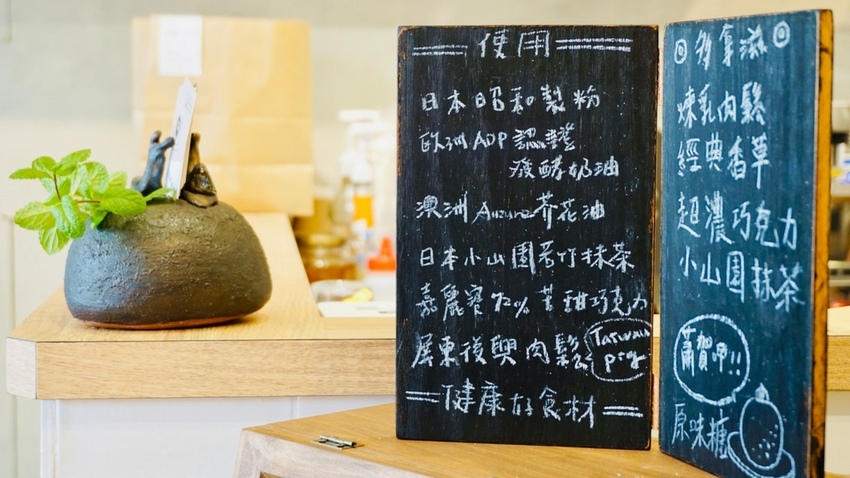 使用
日本昭和製粉
歐洲AOP認證
發酵奶油
澳洲 Azure芥花油
日本小山園若竹抹茶
嘉麗寶72%苦甜巧克力
屏東復興肉鬆
Taiwan
pig
健康好食材
多拿滋
煉乳肉鬆
經典香草
超濃巧克力
小山園抹茶
原味糖